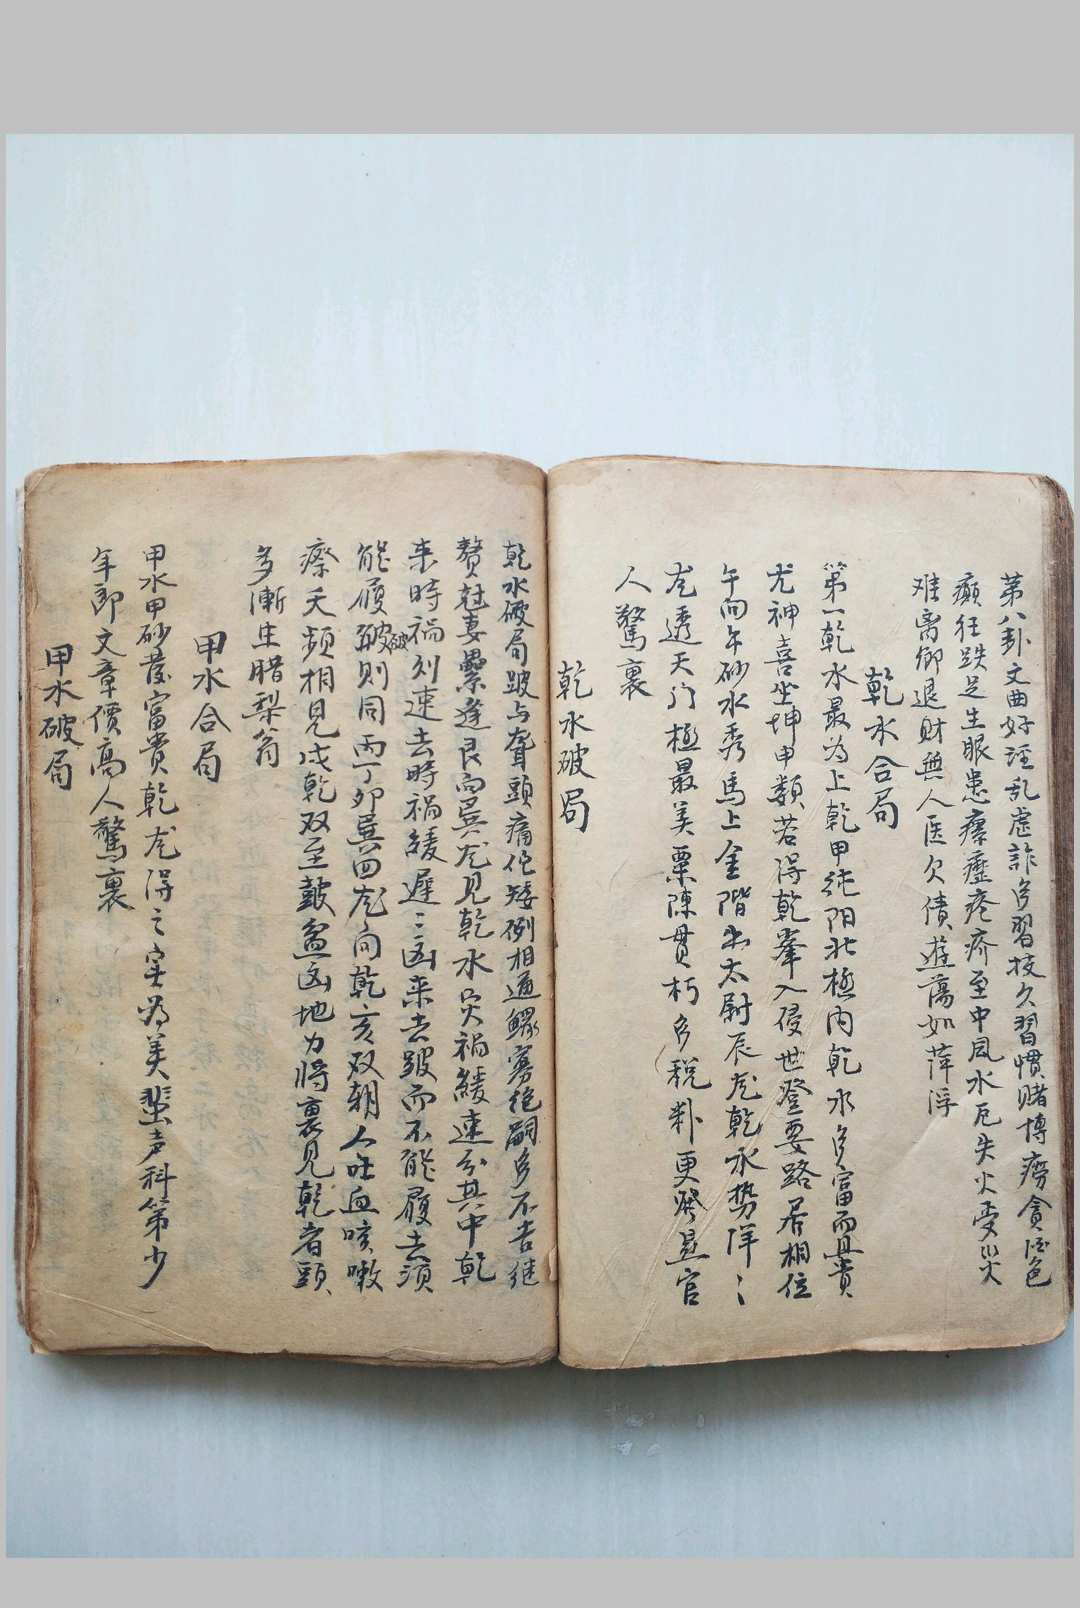 第八卦文曲好淫乱虚詐多習技久習慣赌博痨貪酒色
癲狂跌足生眼患瘰癧疮疥至中風水厄失火受災
难离鄉退財無人医欠债遊蕩如萍浮
乾水合局
第一乾水最为上乾甲纯阳北極内乾水多富而且貴
尤神喜坐坤甲類若得乾峯入侵世登要路居相位
午向午砂水秀馬上金階出太尉辰龙乾水势洋〻
龙透天门極最美粟陳貫朽多税粁更発显官
人驚裏
乾水破局
乾水破局跛与聋頭痛佗矮例相通鳏寡绝嗣多不吉继
赘尅妻纍逢艮向巽龙见乾水灾禍緩速分其中乾
来時禍烈速去時禍緩遲〻凶来去跛而不能履去須
能履破則同丙丁卯巽四龙向乾亥双朝人吐血咳嗽
瘵夭頻相見戌乾双至鼓盆凶地力将裏见乾者頭
多漸生腊梨翁
甲水合局
甲水甲砂發富貴乾龙得之实为美蜚声科第少
年郎文章價高人驚裏
甲水破局